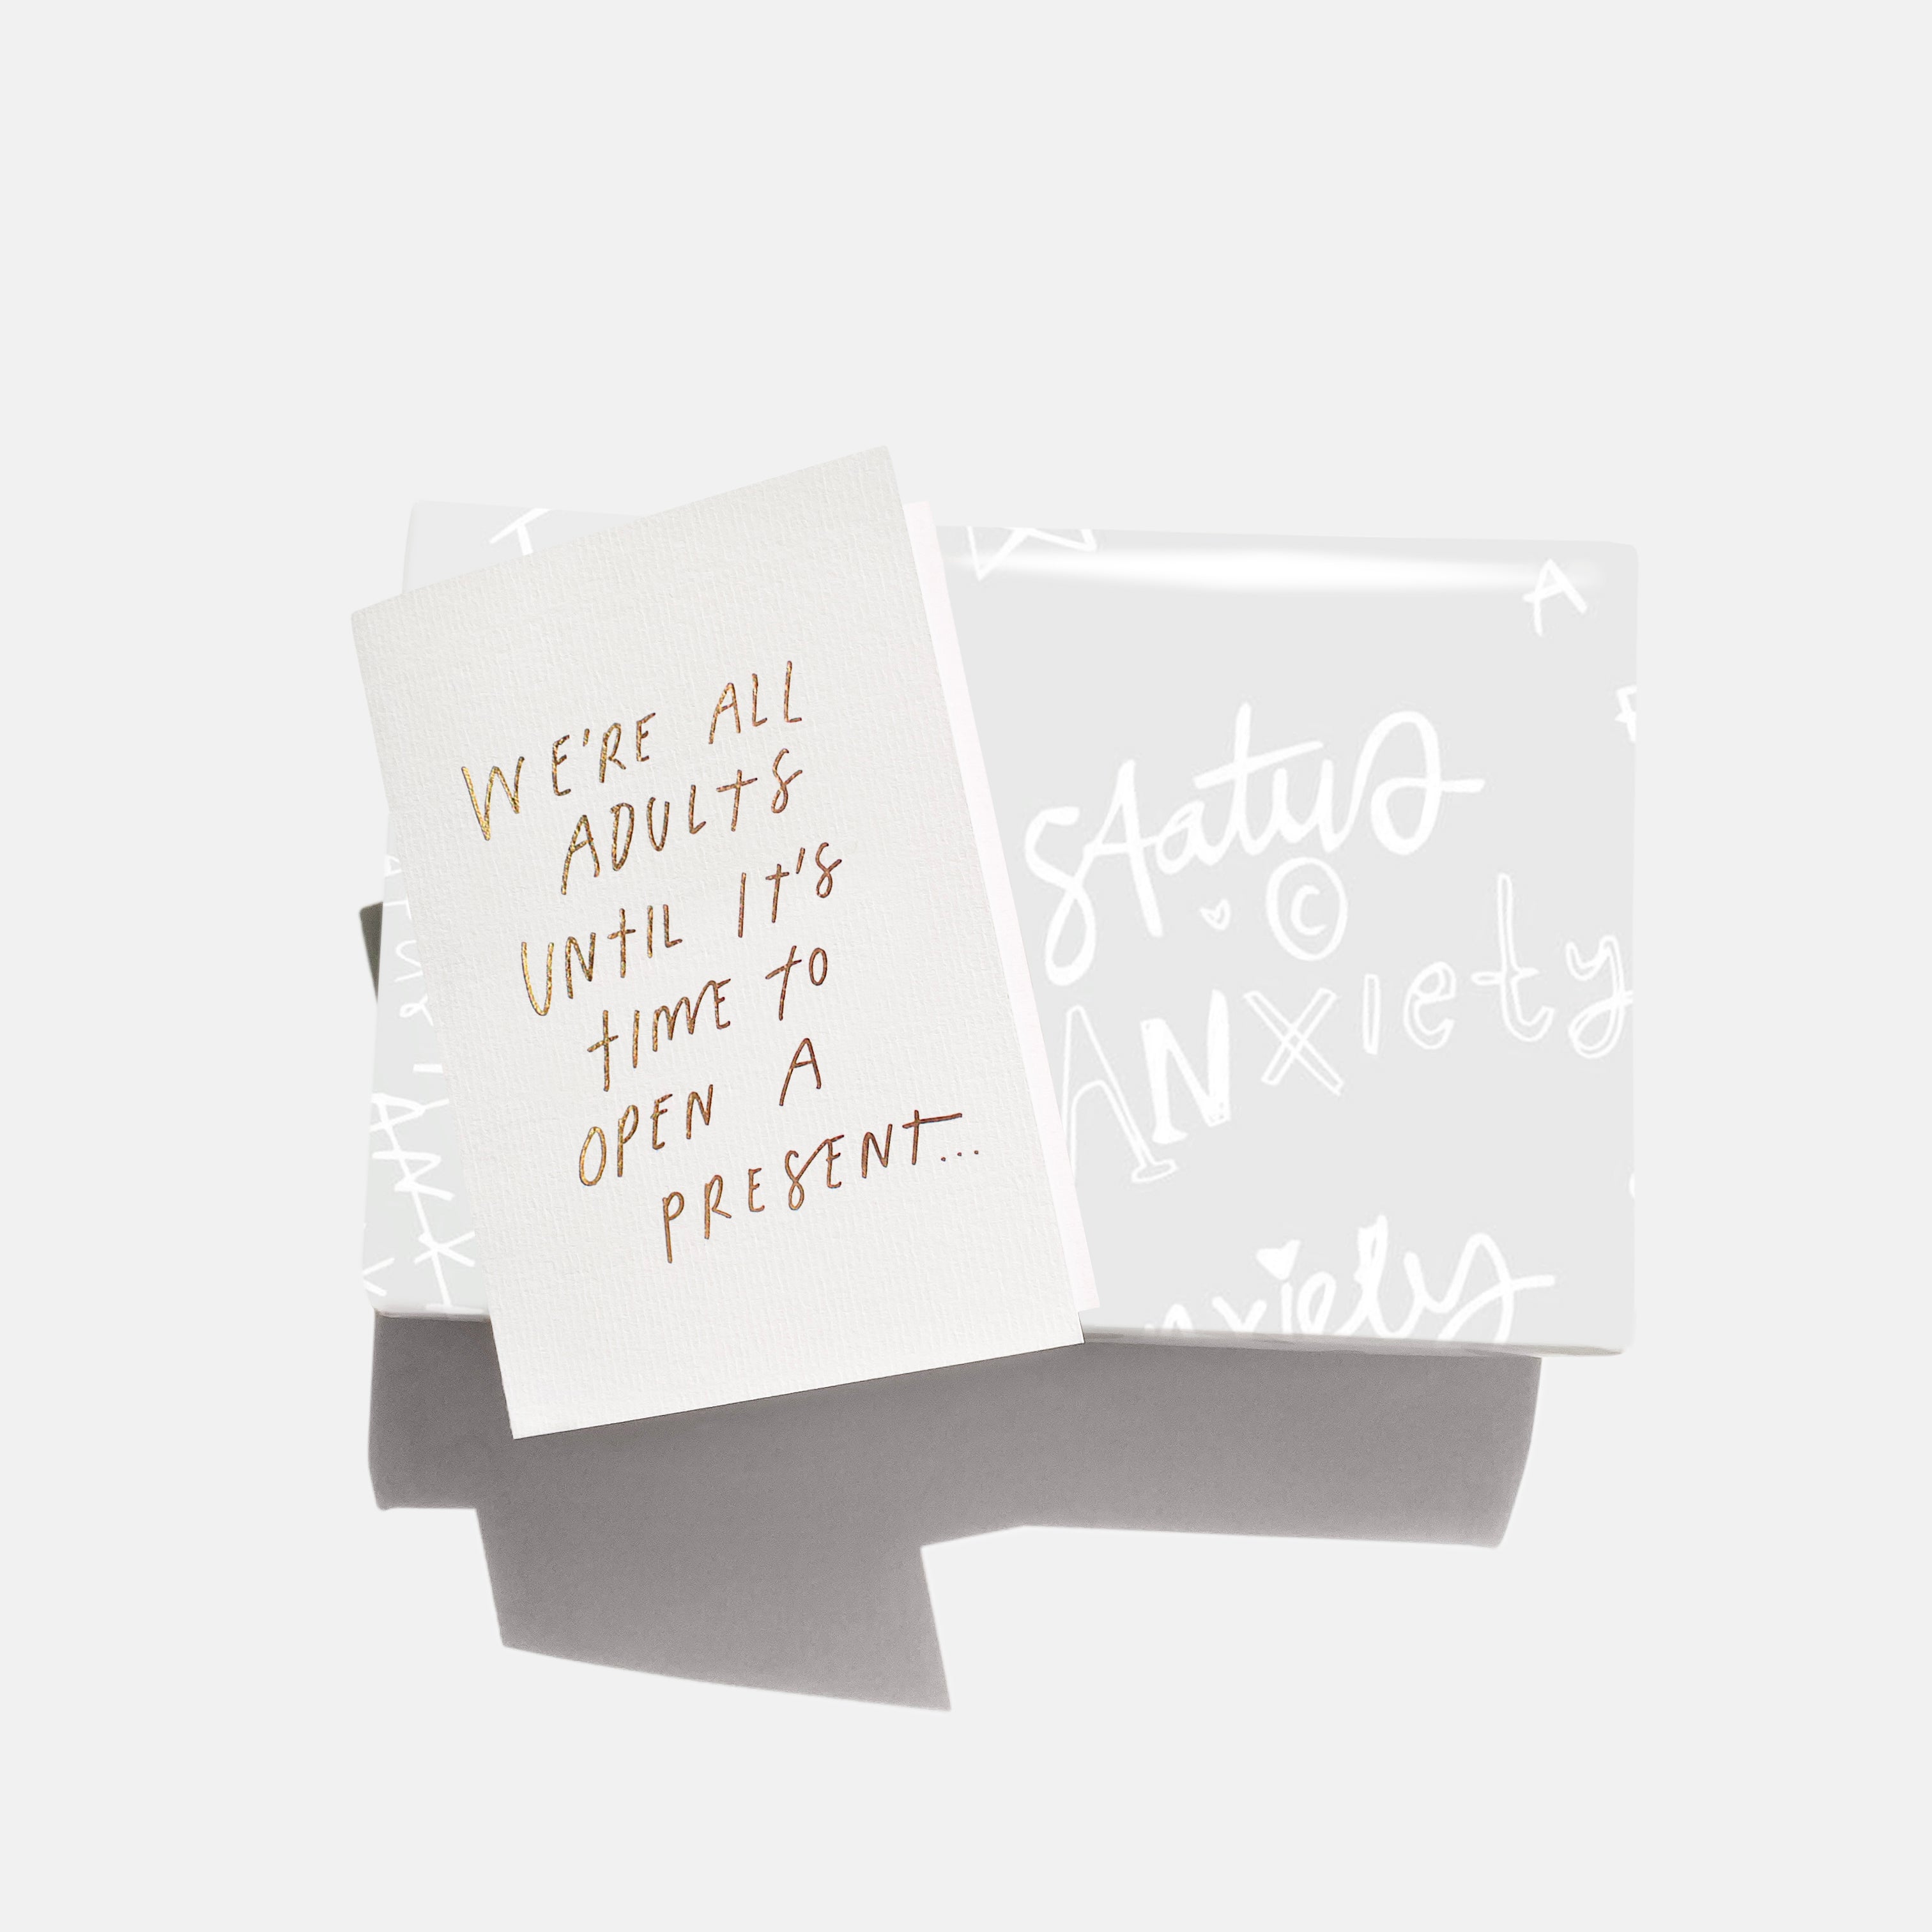 WE'RE ALL
ADULTS
UNTIL IT'S
TIME TO
OPEN A
PRESENT...
A
status
©
ANXIETY
anxiety